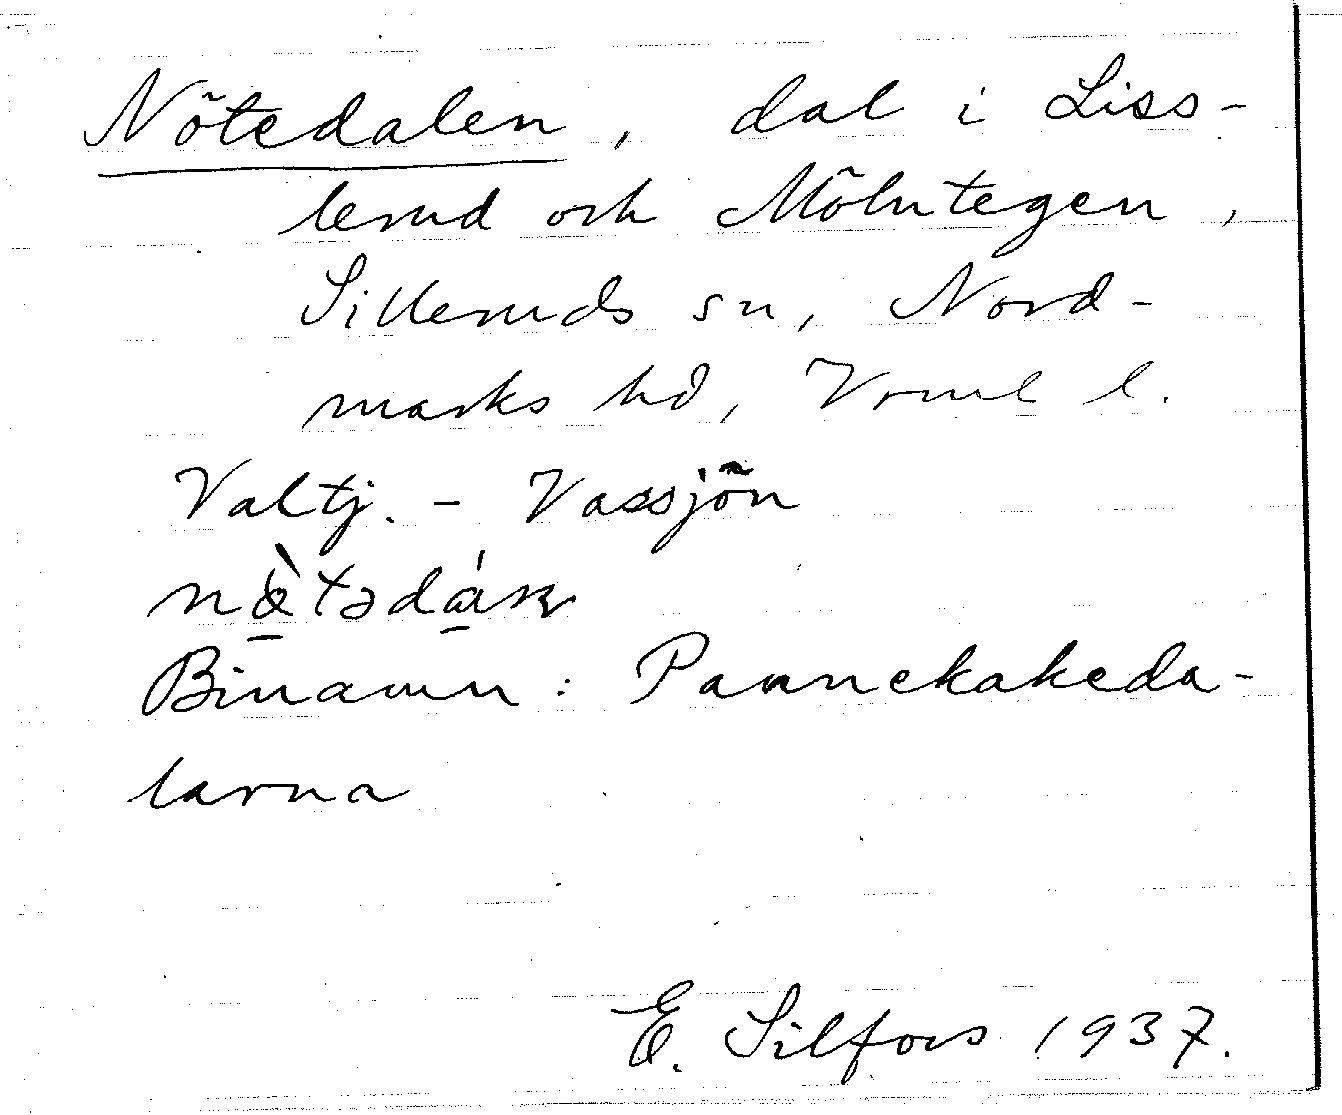 Nötedalen, dal i Liss-
lerud och Mölntegen,
Silleruds sn, Nord-
marks hd, Vrml l.
Valtj. - Vassjön
Binamn: Pannekakeda-
larna
E. Silfors 1937.